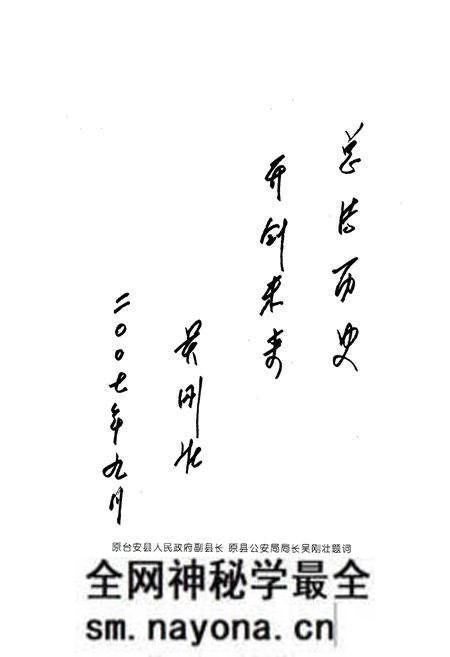 总结历史
开创未来
吴刚壮
二〇〇七年九月
原台安县人民政府副县长 原县公安局局长吴刚壮题词
全网神秘学最全
sm.nayona.cn